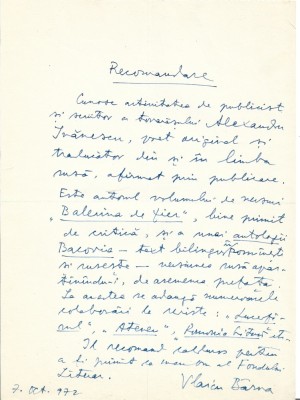 Recomandare
Cunosc activitatea de publicist
și scriitor a tovarășului Alexandru
Ivănescu, poet original și
traducător din și în limba
rusă, afirmat prin publicare.
Este autorul volumului de versuri
„Balerina de fier", bine primit
de critică, și a unei antologii
Bacovia – text bilingv, românește
și rusește – versiunea rusă apar-
ținîndu-i, de asemenea
La acestea se adaugă numeroasele
colaborări la reviste: „Luceafă-
rul", „Ateneu", „România Literară etc.
Îl recomand călduros pentru
a fi primit ca membru al Fondului
Literar.
Vlaicu Bârna
7. Oct. 972